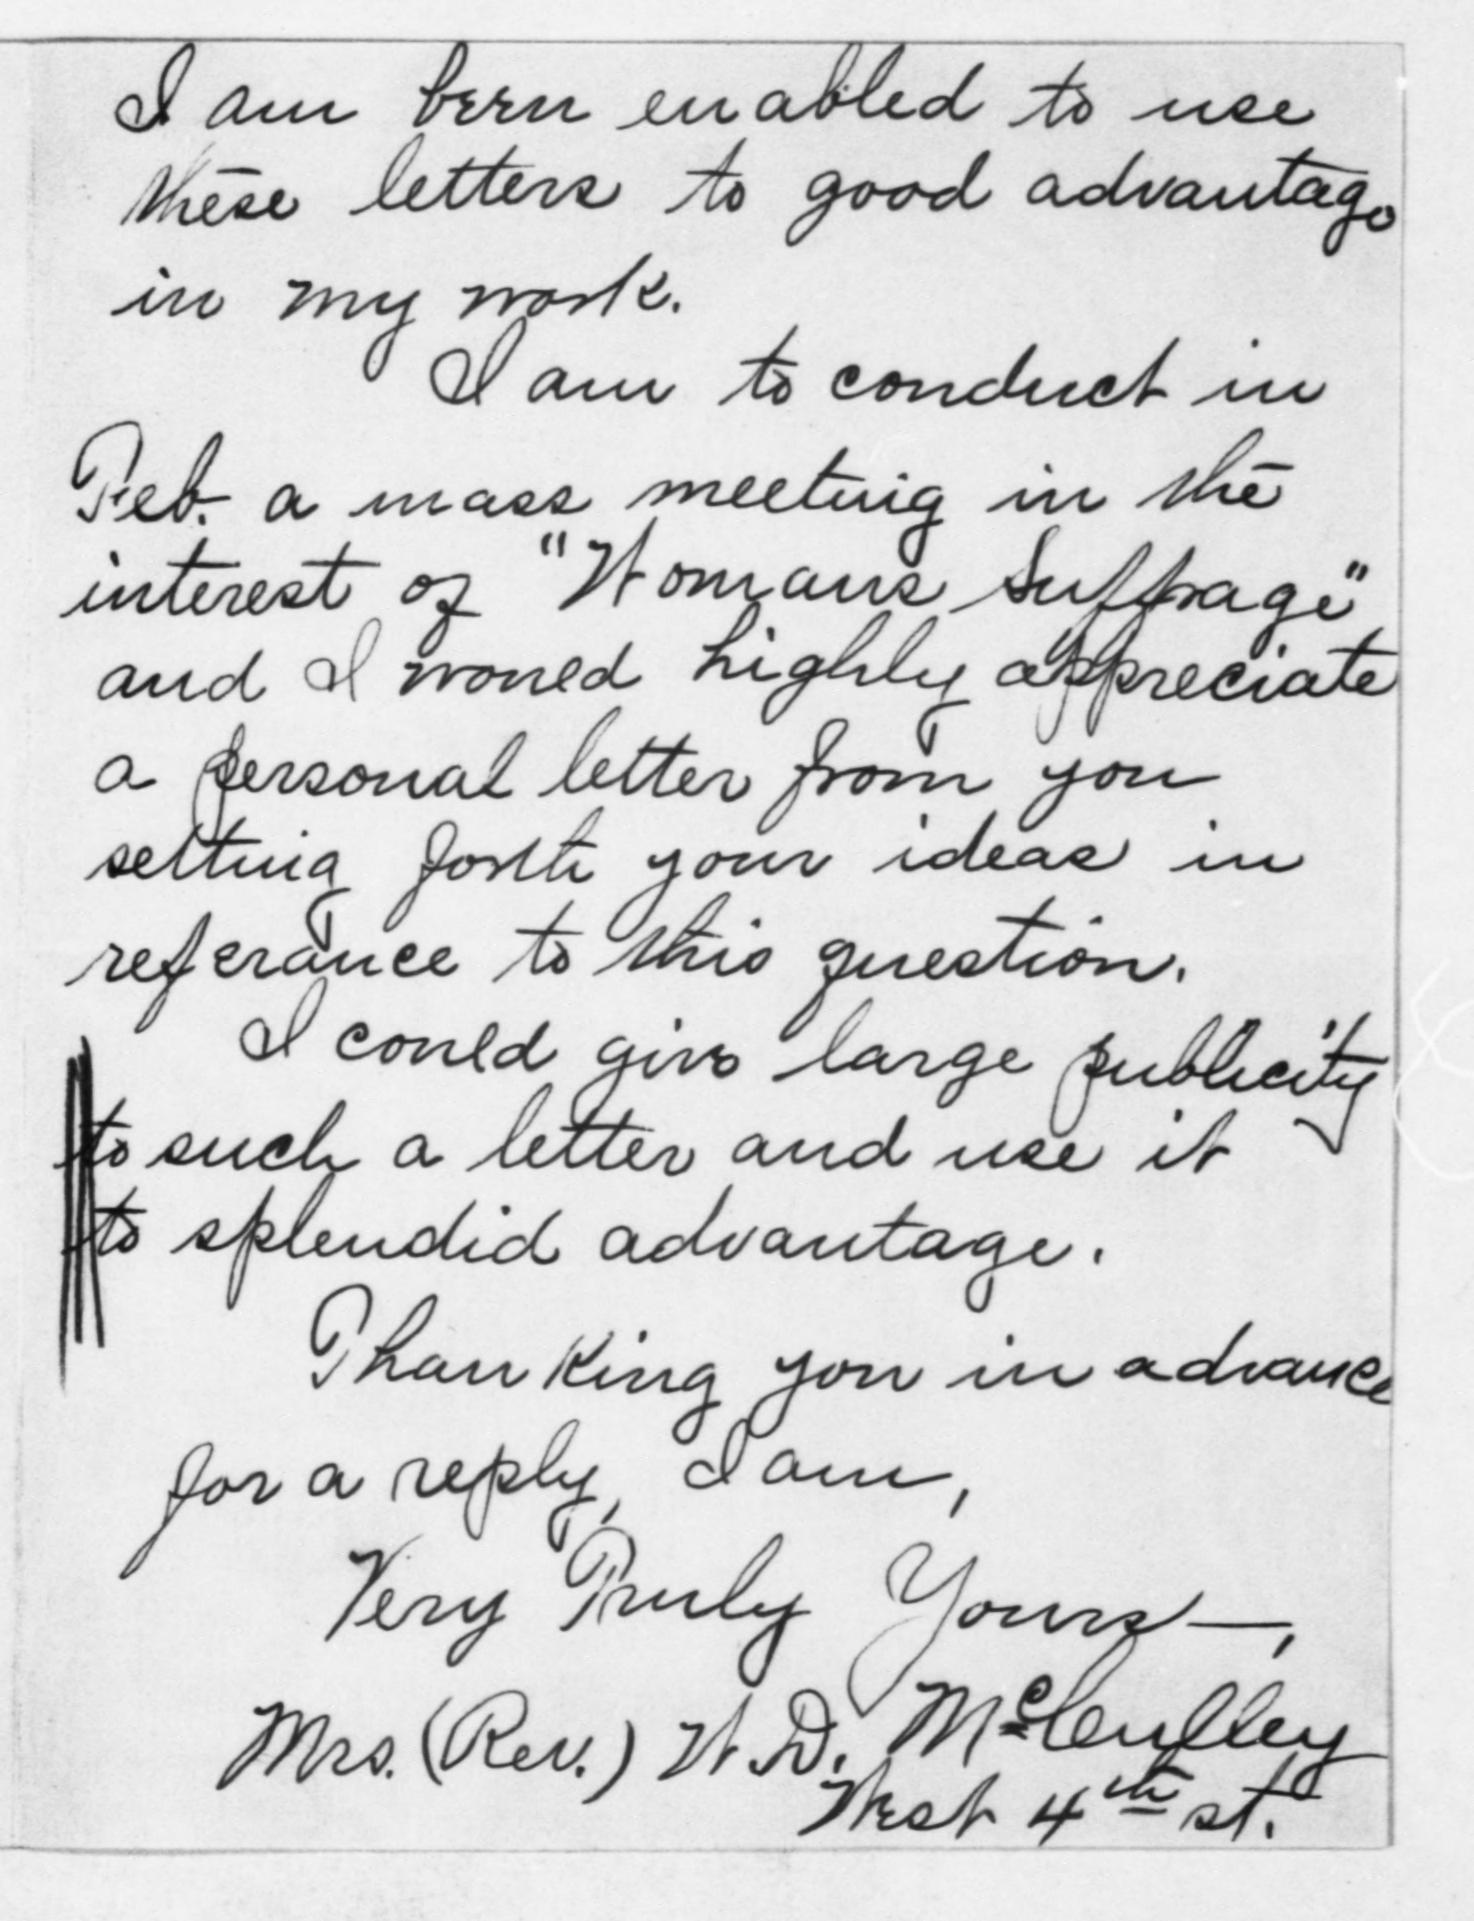 I am been enabled to use
these letters to good advantage
in my work.
I am to conduct in
Feb. a mass meeting in the
interest of "Womans Suffrage"
and I would highly appreciate
a personal letter from you
setting forth your ideas in
referance to this question.
I could give large publicity
to such a letter and use it
to splendid advantage.
Thanking you in advance
for a reply, I am,
Very Truly Yours—,
Mrs. (Rev.) W. D. McCulley
West 4th st.